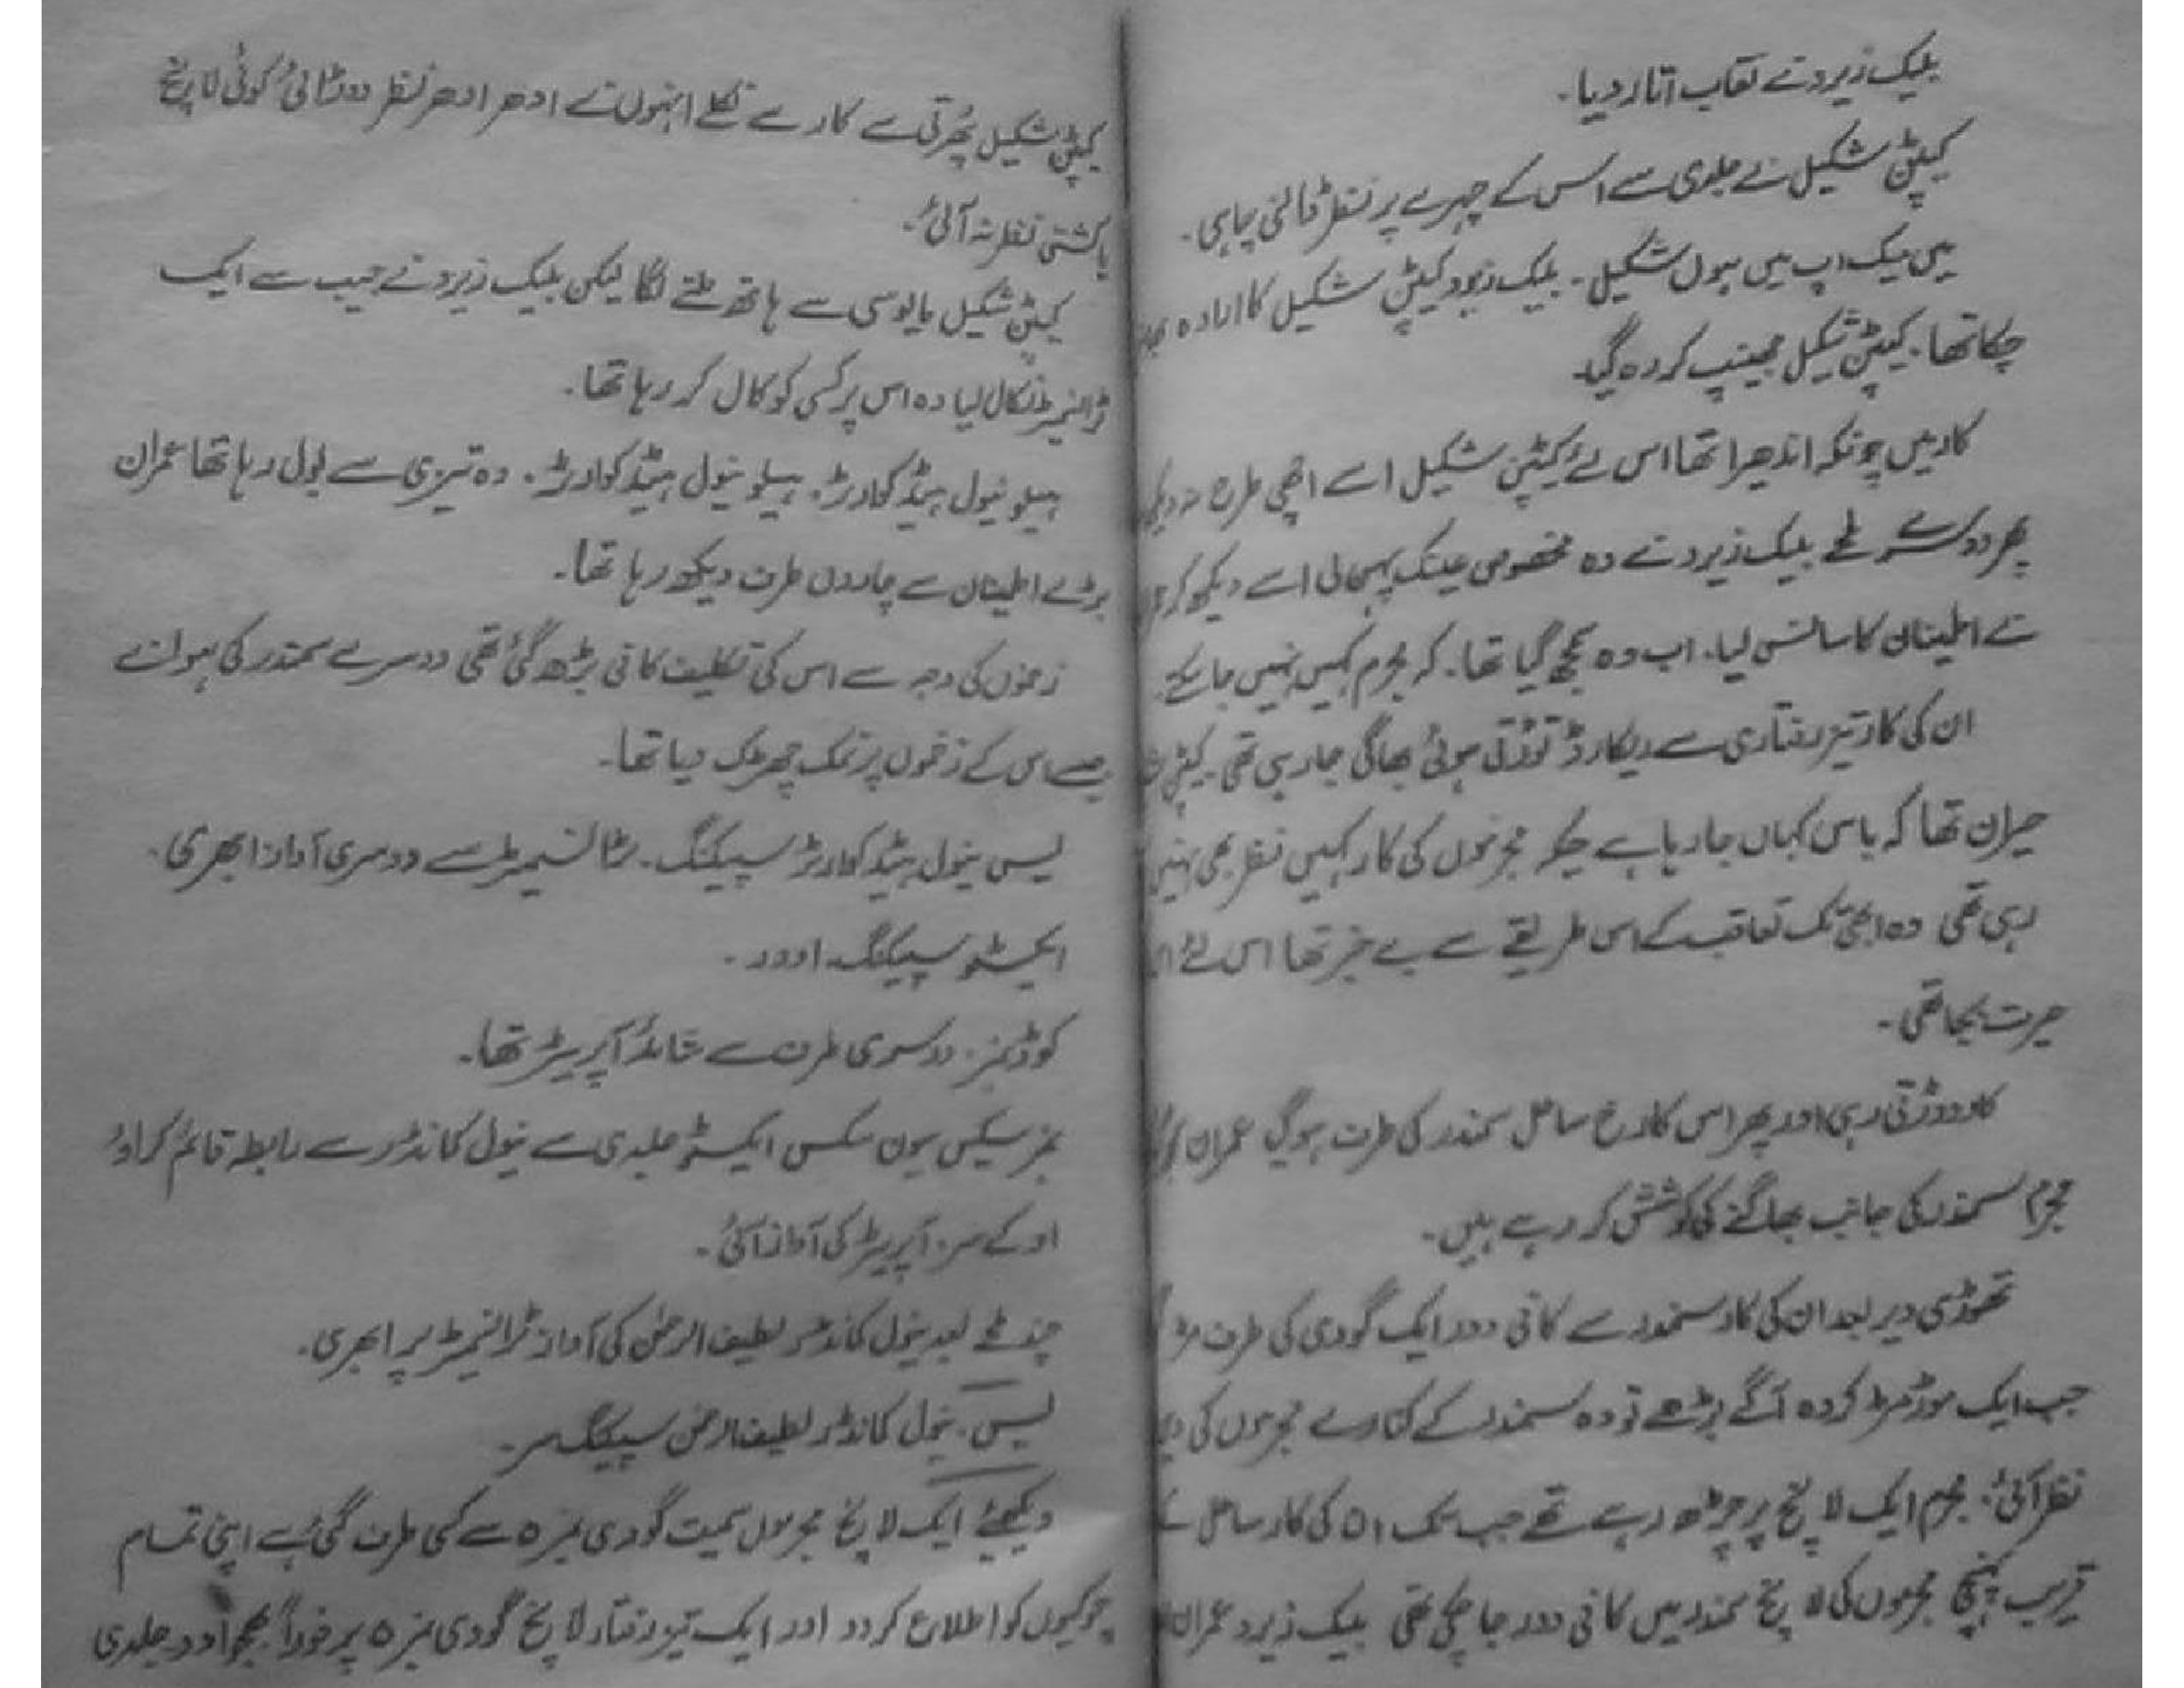 بلیک زیرو نے نقاب اتار دیا۔
کیپٹن شکیل نے جلدی سے اس کے چہرے پر نظر ڈالنی چاہی۔
میں میک اپ میں ہوں شکیل۔ بلیک زیرو کیپٹن شکیل کا ارادہ
چکا تھا۔ کیپٹن شکیل جھینپ کر رہ گیا۔
کار میں چونکہ اندھیرا تھا اس لئے کیپٹن شکیل اسے اچھی طرح نہ دیکھ
پھر دوسرے لمحے بلیک زیرو نے وہ مخصوص عینک پہچان لی اسے دیکھ کر
نے اطمینان کا سانس لیا۔ اب وہ سمجھ گیا تھا۔ کہ مجرم کہیں نہیں جا سکتے۔
ان کی کار تیز رفتاری سے ریکارڈ توڑتی ہوئی بھاگی جا رہی تھی۔ کیپٹن
حیران تھا کہ باس کہاں جا رہا ہے جبکہ مجرموں کی کار کہیں نظر بھی نہیں
رہی تھی وہ ابھی تک تعاقب کے اس طریقے سے بے خبر تھا اس لئے
حیرت بجا تھی۔
کار دوڑتی رہی اور پھر اس کا رخ ساحل سمندر کی طرف ہو گیا عمران
مجرم سمندر کی جانب بھاگنے کی کوشش کر رہے ہیں۔
تھوڑی دیر بعد ان کی کار سمندر سے کافی دور ایک گودی کی طرف مڑ
جب ایک موڑ مڑ کر وہ آگے بڑھے تو وہ سمندر کے کنارے مجرموں کی
نظر آئی۔ مجرم ایک لانچ پر چڑھ رہے تھے جب تک ان کی کار ساحل کے
قریب پہنچی مجرموں کی لانچ سمندر میں کافی دور جا چکی تھی بلیک زیرو عمران
کیپٹن شکیل پھرتی سے کار سے نکلے انہوں نے ادھر ادھر نظر دوڑائی کوئی لانچ
یا کشتی نظر نہ آئی۔
کیپٹن شکیل مایوسی سے ہاتھ ملنے لگا لیکن بلیک زیرو نے جیب سے ایک
ٹرانسمیٹر نکال لیا وہ اس پر کسی کو کال کر رہا تھا۔
ہیلو نیول ہیڈ کوارٹر۔ ہیلو نیول ہیڈ کوارٹر۔ وہ تیزی سے بول رہا تھا عمران
بڑے اطمینان سے چاروں طرف دیکھ رہا تھا۔
زخموں کی وجہ سے اس کی تکلیف کافی بڑھ گئی تھی دوسرے سمندر کی ہوا نے
جیسے اس کے زخموں پر نمک چھڑک دیا تھا۔
لیس نیول ہیڈ کوارٹر سپیکنگ۔ ٹرانسمیٹر سے دوسری آواز ابھری۔
ایکسٹو سپیکنگ اوور۔
کوڈ نمبر۔ دوسری طرف سے شائد آپریٹر تھا۔
نمبر سیکس یون سکس ایکسٹو جلدی سے نیول کمانڈر سے رابطہ قائم کراؤ
اوکے سر۔ آپریٹر کی آواز آئی۔
چند لمحے بعد نیول کمانڈر لطیف الرحمٰن کی آواز ٹرانسمیٹر پر ابھری۔
لیس۔ نیول کمانڈر لطیف الرحمن سپیکنگ سر۔
دیکھئے ایک لانچ مجرموں سمیت گودی نمبر ۵ سے کسی طرف گئی ہے اپنی تمام
چوکیوں کو اطلاع کر دو اور ایک تیز رفتار لانچ گودی نمبر ۵ پر فوراً بھیجو اور جلدی